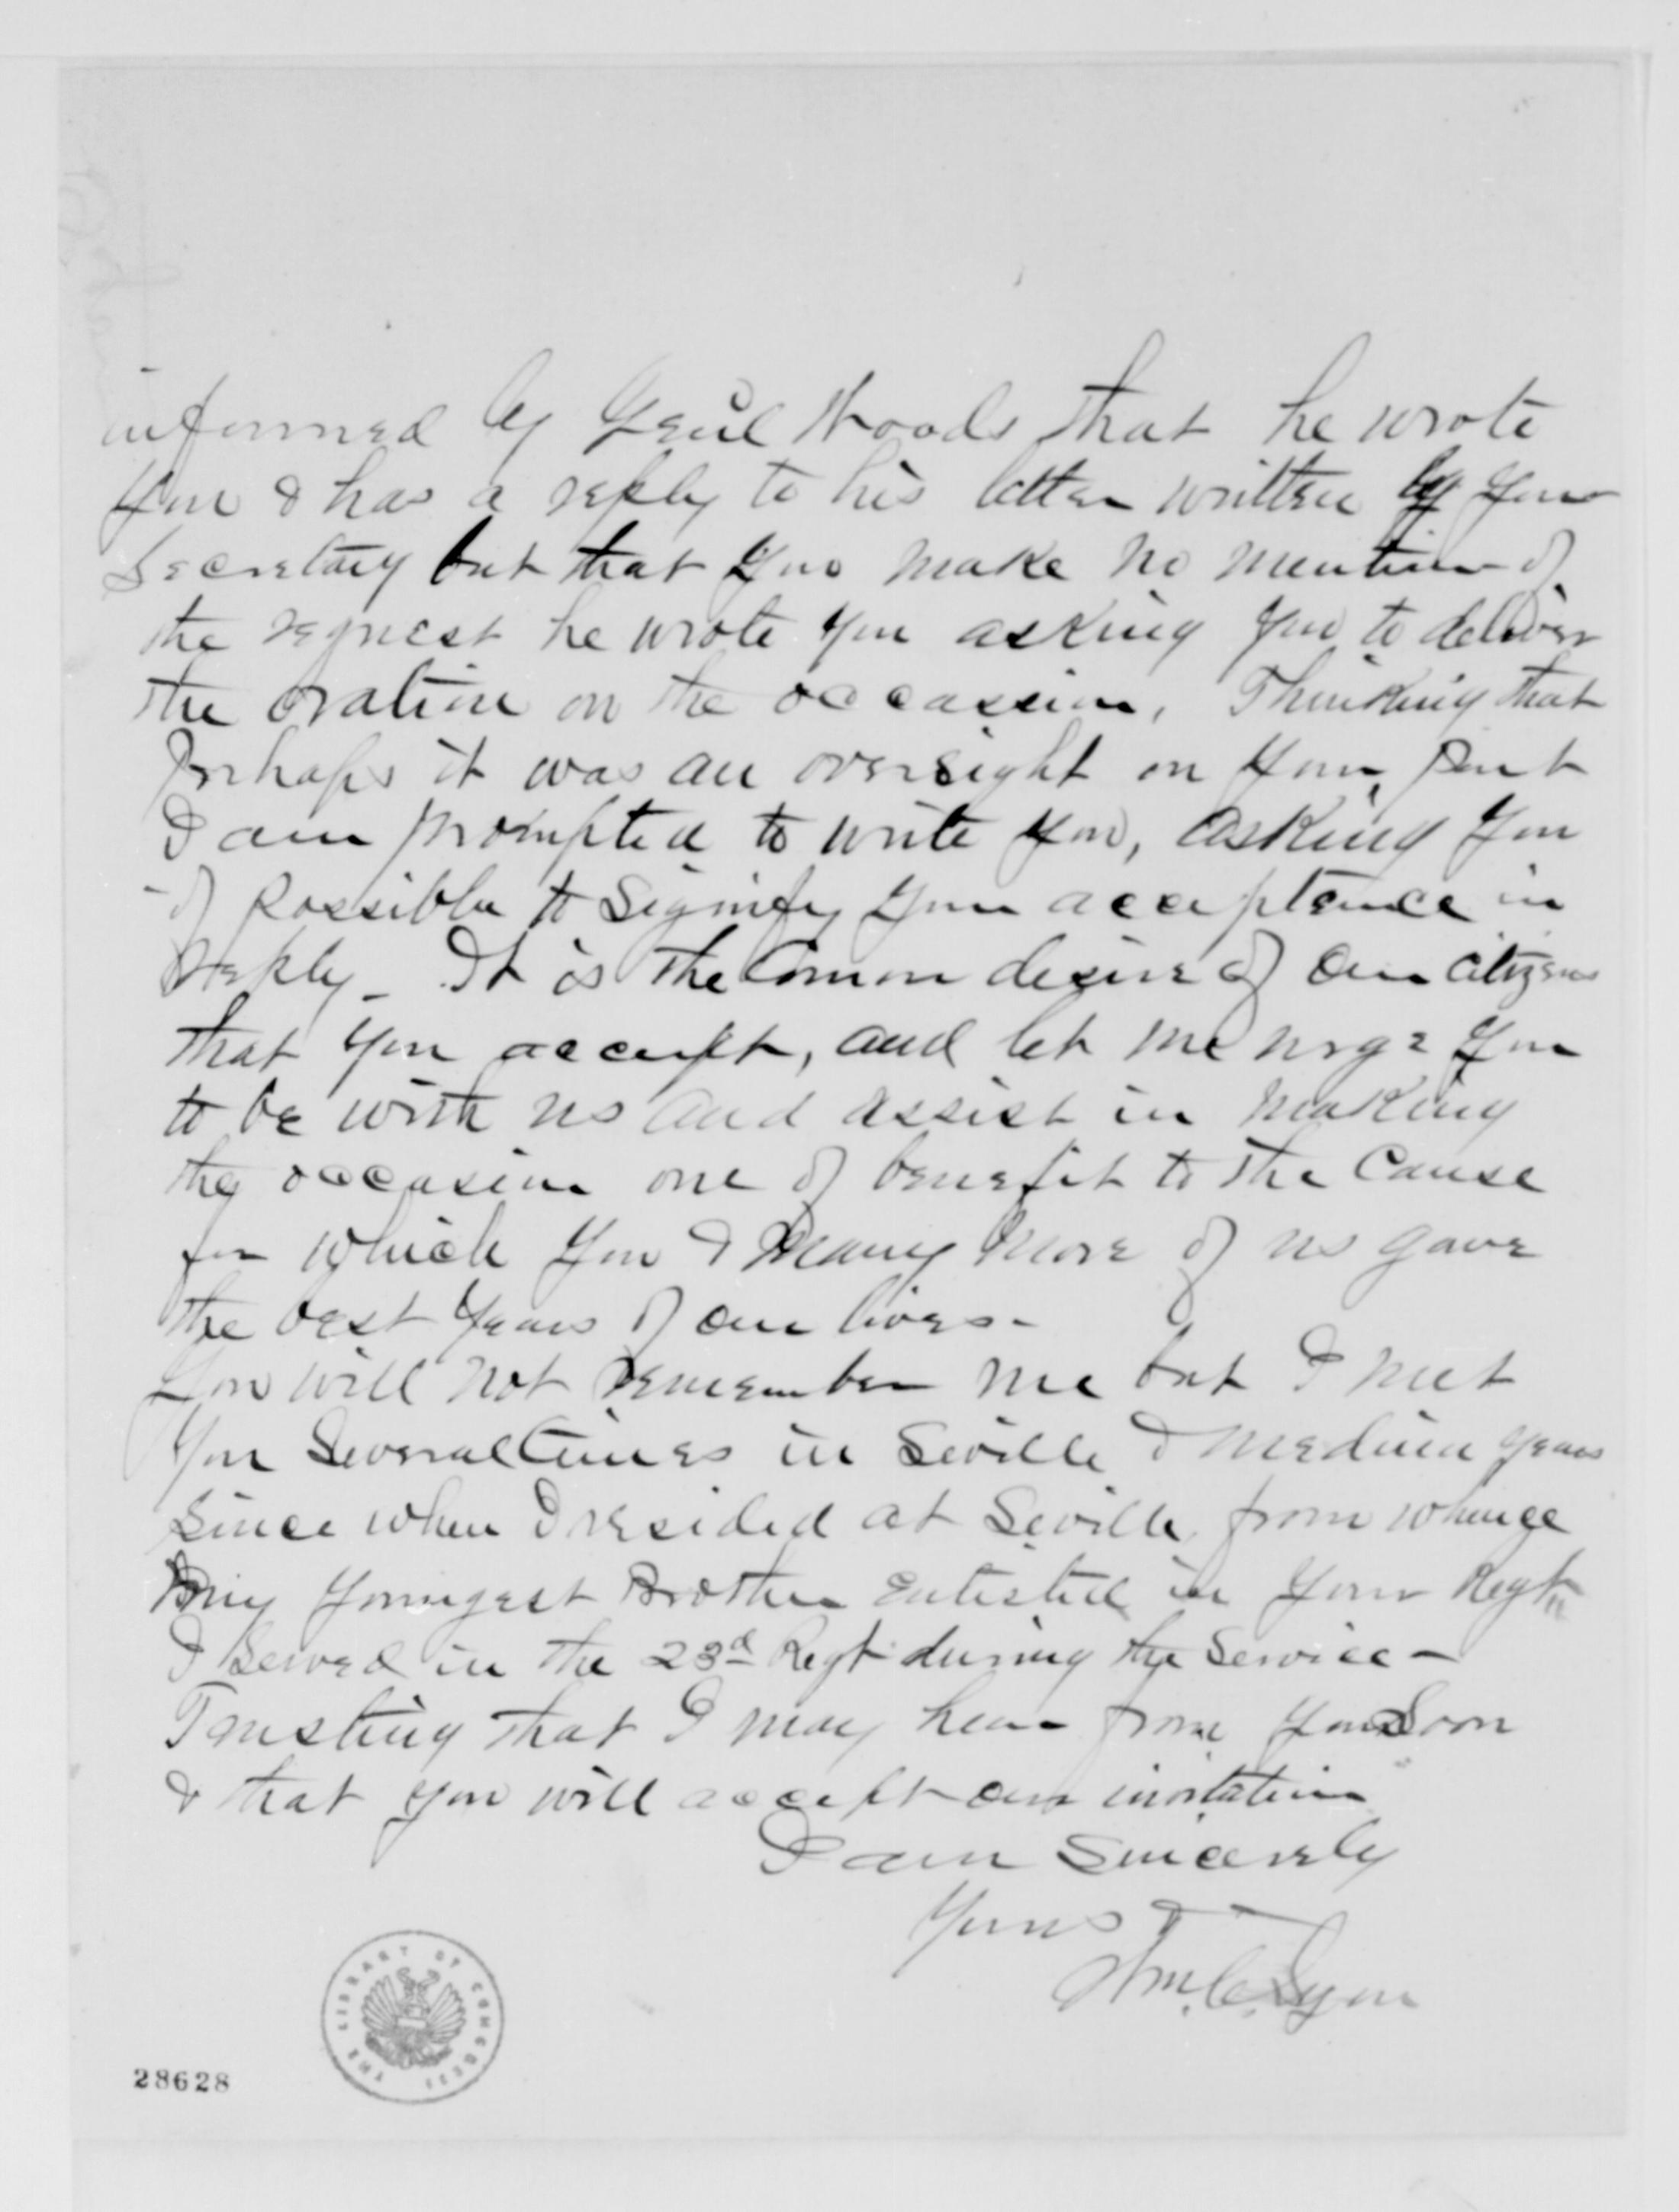 informed by Genl Woods that he wrote
you & has a reply to his letter written by your
Secretary but that you make no mention of
the request he wrote you asking you to deliver
the oration on the occassion, Thinking that
Perhaps it was an oversight on your part
I am prompted to write you, asking you
if possible to signify your acceptance in
reply_ It is the Comon desire of our citizens
that you accept, and let me urge you
to be with us and assist in making
the occasion one of benefit to the Cause
for which you & many more of us gave
the best years of our lives-
You will not remember me but I met
you several times in Seville & Medina years
since when I resided at Seville, from whence
my youngest Brother enlisted in your Regt
I served in the 23d Regt during the service-
Trusting that I may hear from you soon
& that you will accept our invitation
I am Sincerely
Yours &
Wm. C. Lyon
THE LIBRARY OF CONGRESS
28628